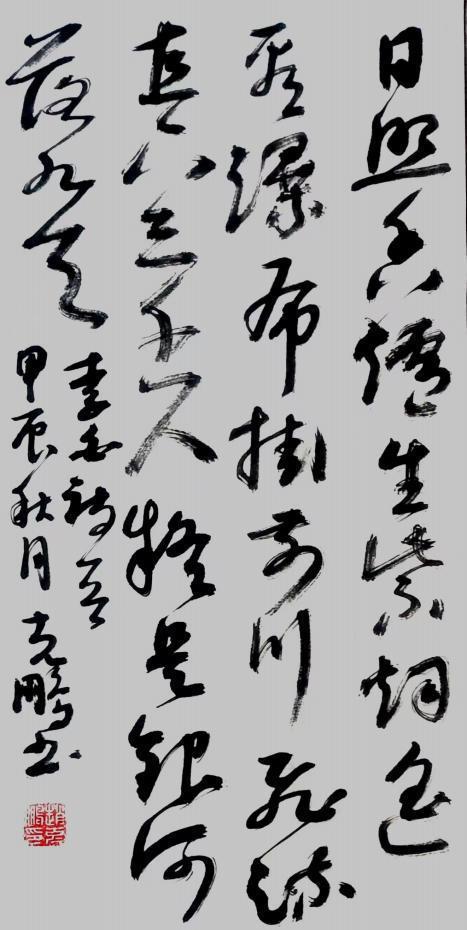 日照香爐生紫烟遥
看瀑布掛前川飛流
直下三千尺疑是銀河
落九天
李白詩一首
甲辰秋月克鵬書